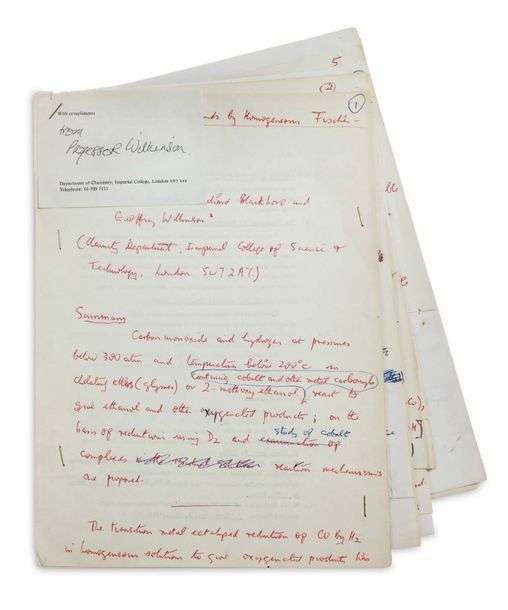 5
(2)
1
With compliments
from
Professor Wilkinson.
Department of Chemistry, Imperial College, London SW7 2AY
Telephone: 01-589 5111
by Homogeneous Fischer-
Blackborow and
Geoffrey Wilkinson*
(Chemistry Department, Imperial College of Science &
Technology, London SW7 2AY)
Summary
Carbon monoxide and hydrogen at pressures
below 300 atm and temperatures below 200°C in
containing cobalt and other metal carbonyls
chelating ethers (glymes) or 2-methoxyethanol react to
give ethanol and other oxygenated products; on the
study of cobalt
basis of reductions using D2 and examination of
complexes reaction mechanisms
are proposed.
The transition metal catalysed reduction of CO by H2
in homogeneous solutions to give oxygenated products has